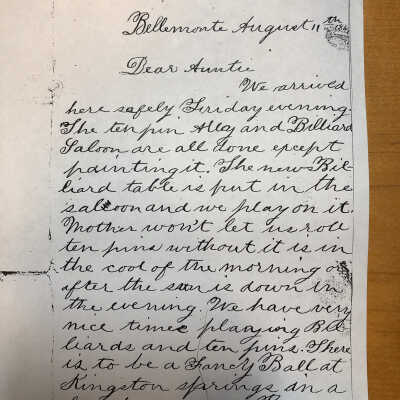 Bellemonte August 11th
Dear Auntie
We arrived
here safely Friday evening.
The ten pin Alley and Billiard
Saloon are all done except
painting it. The new Bil-
liard table is put in the
saloon and we play on it.
Mother won't let us roll
ten pins without it is in
the cool of the morning or
after the sun is down in
the evening. We have very
nice times playing Bil-
liards and ten pins. There
is to be a Fancy Ball at
Kingston springs in a